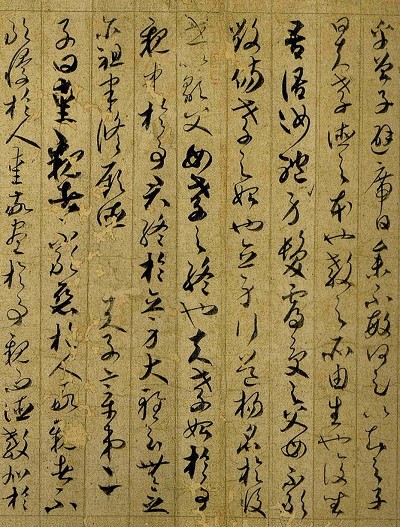 乎曾子避席曰參不敏何足以知之子
曰夫孝德之本也教之所由生也復坐
吾語汝體身髮膚受之父母不敢
毀傷孝之始也立身行道揚名於後
世以顯父母孝之終也夫孝始於事
親中於事君終於立身大雅云無
尒祖聿脩厥德 天子章第二
子曰愛親者不敢惡於人敬親者不
敢慢於人愛敬盡於事親而德教加於